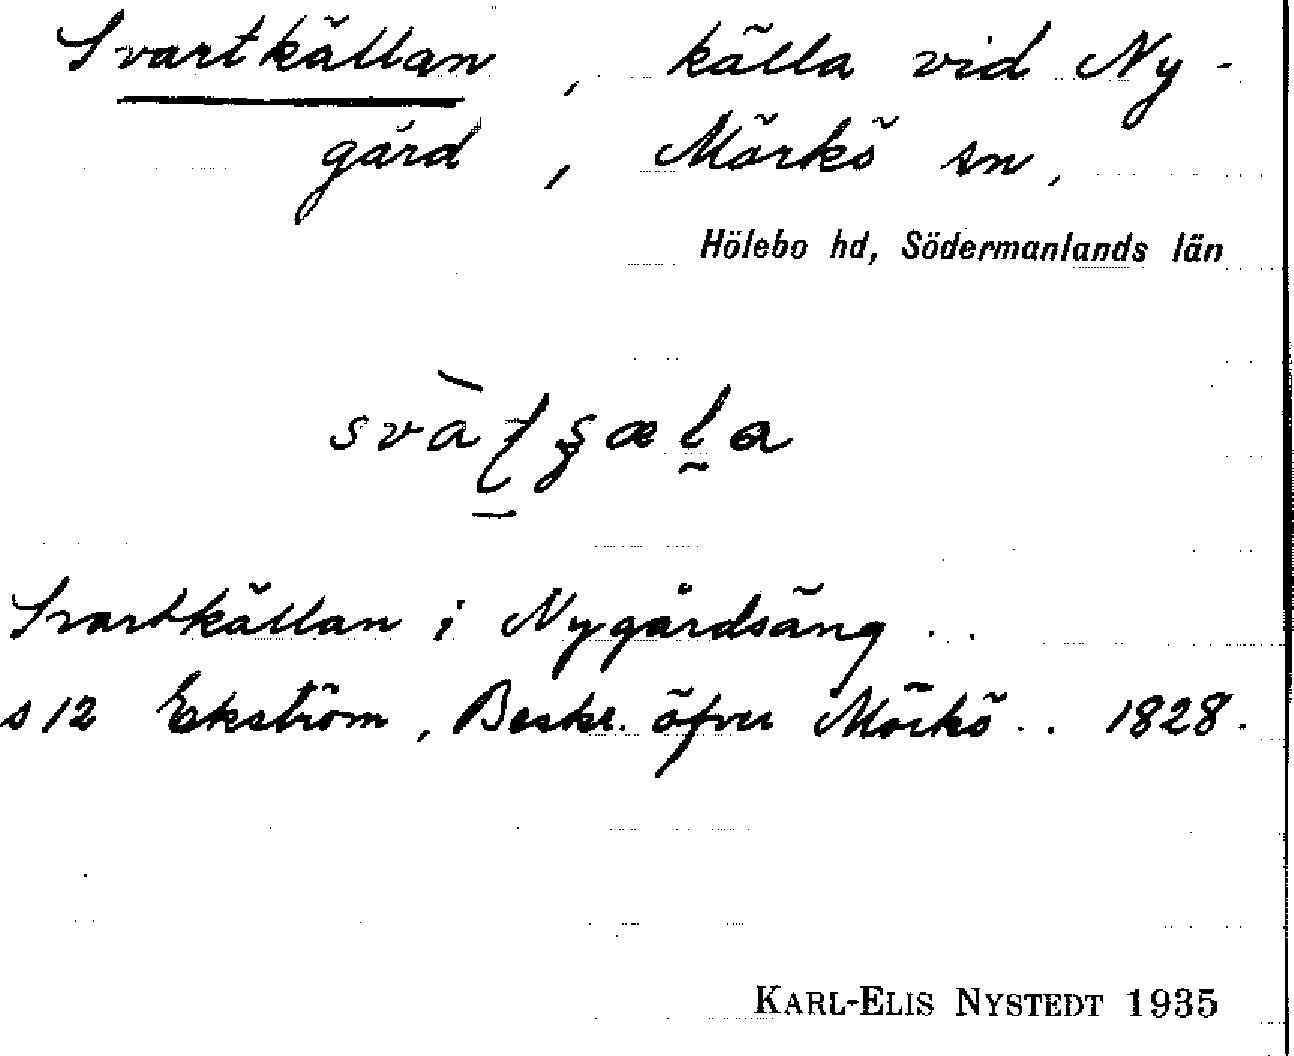 Svartkällan, källa vid Ny-
gård, Mörkö sn,
Hölebo hd, Södermanlands län
Svartkällan i Nygårdsäng . .
s 12 Ekström, Beskr. öfver Mörkö . . 1828.
KARL-ELIS NYSTEDT 1935